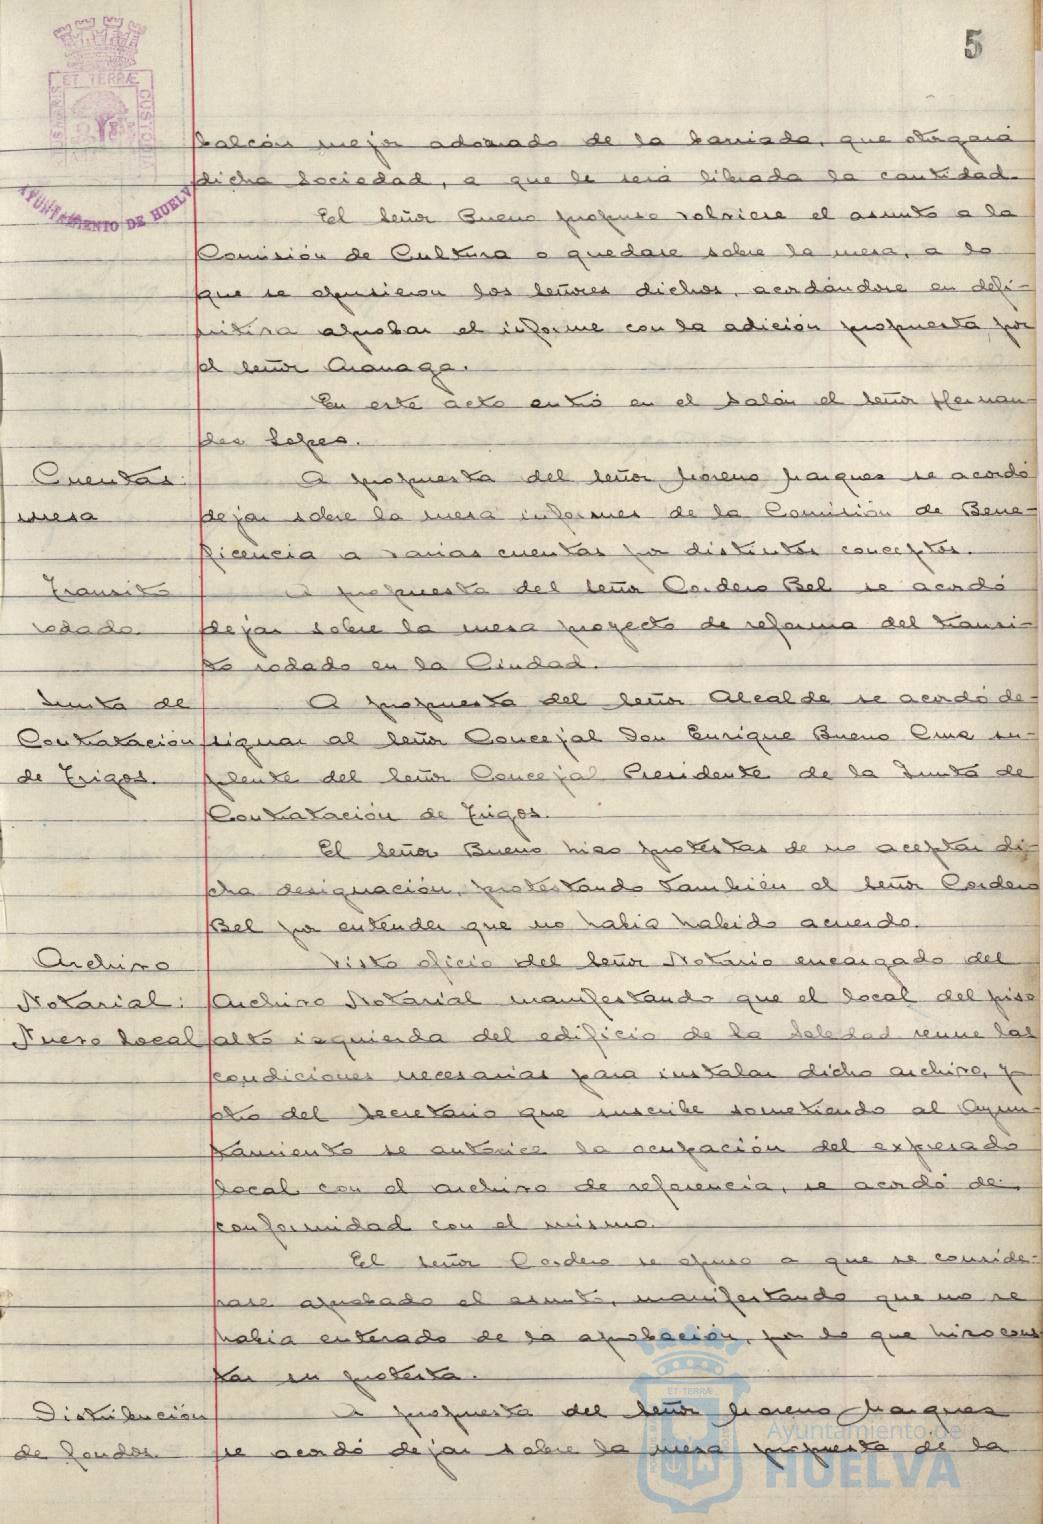 5
PORTUS MARIS
ET TERRÆ
CUSTODIA
AYUNTAMIENTO DE HUELVA
balcón mejor adornado de la barriada, que otorgará
dicha Sociedad, a que le será librada la cantidad.
El Señor Bueno propuso volviese el asunto a la
Comisión de Cultura o quedase sobre la mesa, a lo
que se opusieron los Señores dichos, acordándose en defi-
nitiva aprobar el informe con la adición propuesta por
el Señor Aranaga.
En este acto entró en el Salón el Señor Hernan-
dez Lopez.
Cuentas:
mesa
A propuesta del Señor Moreno Marquez se acordó
dejar sobre la mesa informes de la Comisión de Bene-
ficencia a varias cuentas por distintos conceptos.
Transito
rodado.
A propuesta del Señor Cordero Bel se acordó
dejar sobre la mesa proyecto de reforma del transi-
to rodado en la Ciudad.
Junta de
Contratación
de Trigos.
A propuesta del Señor Alcalde se acordó de-
signar al Señor Concejal Don Enrique Bueno Cruz su-
plente del Señor Concejal Presidente de la Junta de
Contratación de Trigos.
El Señor Bueno hizo protestas de no aceptar di-
cha designación, protestando también el Señor Cordero
Bel por entender que no había habido acuerdo.
Archivo
Notarial:
Nuevo local
Visto oficio del Señor Notario encargado del
Archivo Notarial manifestando que el local del piso
alto izquierda del edificio de la Soledad reune las
condiciones necesarias para instalar dicho archivo, y
otro del Secretario que suscribe sometiendo al Ayun-
tamiento se autorice la ocupación del expresado
local con el archivo de referencia, se acordó de
conformidad con el mismo.
El Señor Cordero se opuso a que se conside-
rase aprobado el asunto, manifestando que no se
había enterado de la aprobación, por lo que hizo cons-
tar su protesta.
Distribución
de fondos.
A propuesta del Señor Moreno Marquez
se acordó dejar sobre la mesa propuesta de la
Ayuntamiento de
HUELVA